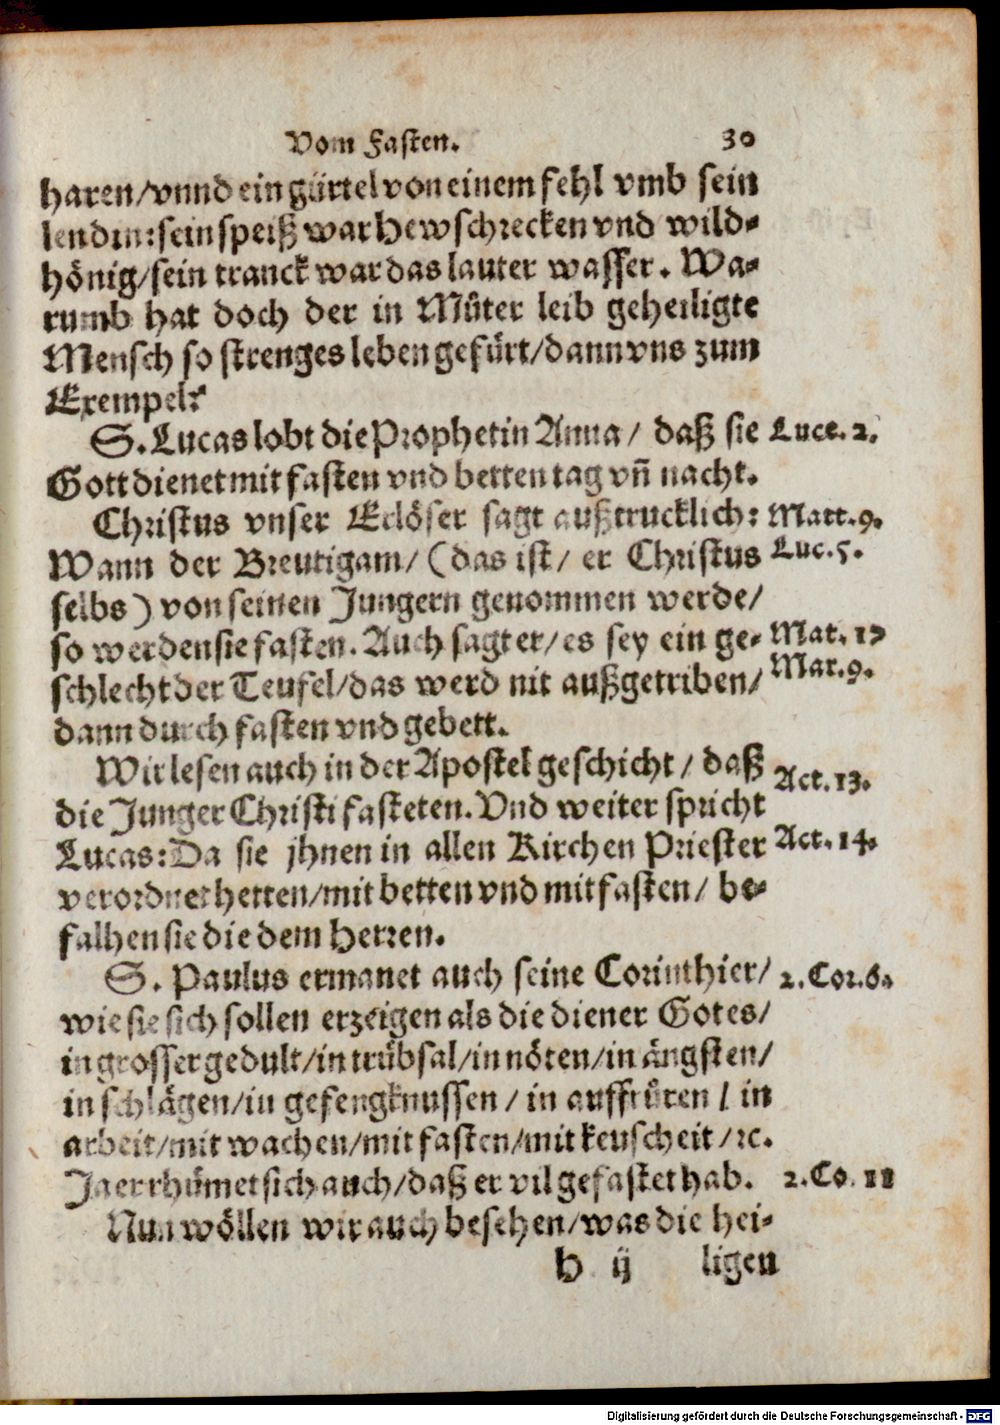 Vom Fasten. 30
haren/vnnd ein gürtel von einem fehl vmb sein
lendin: sein speiß war Hewschrecken vnd wild-
hönig/sein tranck war das lauter wasser. Wa-
rumb hat doch der in Můter leib geheiligte
Mensch so strenges leben gefürt/dann vns zum
Exempel?
S. Lucas lobt die Prophetin Anna/ daß sie Luce. 2.
Gott dienet mit fasten vnd betten tag vñ nacht.
Christus vnser Erlöser sagt außtrucklich: Matt. 9.
Wann der Breutigam/ (das ist/ er Christus Luc. 5.
selbs) von seinen Jungern genommen werde/
so werden sie fasten. Auch sagt er/ es sey ein ge- Mat. 17
schlecht der Teufel/das werd nit außgetriben/ Mar. 9.
dann durch fasten vnd gebett.
Wir lesen auch in der Apostel geschicht/ daß
die Junger Christi fasteten. Vnd weiter spricht Act. 13.
Lucas: Da sie jhnen in allen Kirchen Priester Act. 14.
verordnet hetten/mit betten vnd mit fasten/ be-
falhen sie die dem Herren.
S. Paulus ermanet auch seine Corinthier/ 2. Cor. 6.
wie sie sich sollen erzeigen als die diener Gotes/
in grosser gedult/in trübsal/in nöten/in ängsten/
in schlägen/in gefengknussen/ in auffrüren/ in
arbeit/mit wachen/mit fasten/mit keuscheit/ꝛc.
Ja er rhümet sich auch/daß er vil gefastet hab. 2. Co. 11
Nun wöllen wir auch besehen/was die hei-
H ij ligen
Digitalisierung gefördert durch die Deutsche Forschungsgemeinschaft - DFG